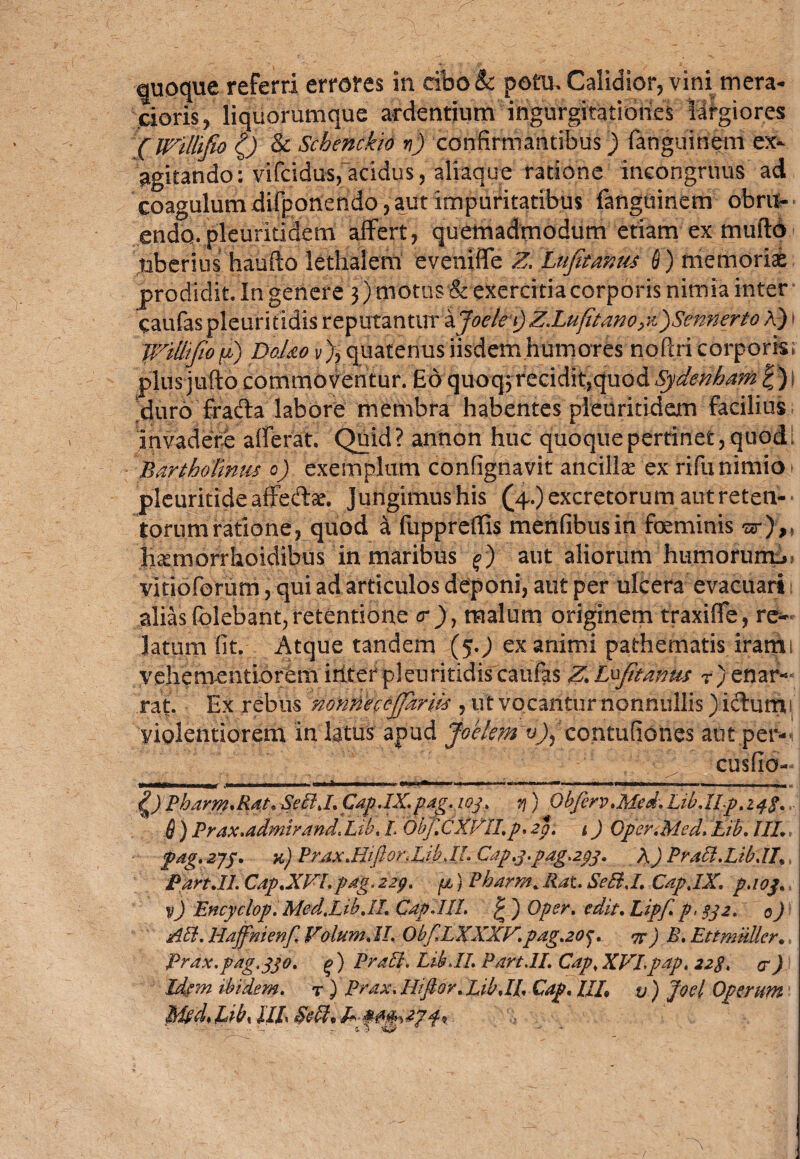 quoque referri errores in cibo & potu. Calidior, vini mera-
cioris, liquorumque ardentium ingurgitationes largiores
(Willisio ζ) & Schenckio η) confirmantibus) sanguinem ex-
agitando: viscidus, acidus, aliaque ratione incongruus ad
coagulum disponendo, aut impuritatibus sanguinem obru-
endo. pleuritidem affert, quemadmodum etiam ex musto
uberius hausto lethalem evenisse Z. Lusitanus θ) memoriæ
prodidit. In genere 3) motus & exercitia corporis nimia inter
causas pleuritidis reputantur à Joele ι) Z. Lusitano, κ) Sennerto λ)
Willisio μ) Dolæo ν), quatenus iisdem humores nostri corporis
plus justo commoventur. Eò quoq; recidit, quod Sydenham ξ)
duro fracta labore membra habentes pleuritidem facilius
invadere asserat. Quid? annon huc quoque pertinet, quod
Bartholinus ο) exemplum consignavit ancillæ ex risu nimio
pleuritide affectæ. Jungimus his (4.) excretorum aut reten-
torum ratione, quod à suppressis mensibus in fœminis π),
hæmorrhoidibus in maribus ρ) aut aliorum humorum
vitiosorum, qui ad articulos deponi, aut per ulcera evacuari
aliàs solebant, retentione σ), malum originem traxisse, re-
latum sit. Atque tandem (5.) ex animi pathematis iram
vehementiorem inter pleuritidis causas Z. Lusitanus τ) enar-
rat. Ex rebus nonnecessariis, ut vocantur nonnullis) ictum
violentiorem in latus apud Joelem υ), contusiones aut per-
cussio-
ζ) Pharm. Rat. Sect. I. Cap. IX. pag. 103. η) Observ. Med. Lib. II. p. 248.
θ) Prax. admirand. Lib. I. Obs. CXVII. p. 29. ι) Oper. Med. Lib. III.
pag. 275. κ) Prax. Histor. Lib. II. Cap. 3. pag. 293. λ) Pract. Lib. II,
Part. II. Cap. XVI. pag. 229. μ) Pharm. Rat. Sect. I. Cap. IX. p. 103.
ν) Encyclop. Med. Lib. II. Cap. III. ξ) Oper. edit. Lips. p. 332. ο)
Act. Haffniens. Volum. II. Obs. LXXXV. pag. 205. π) B. Ettmüller.
Prax. pag. 330. ρ) Pract. Lib. II. Part. II. Cap. XVI. pap. 228. σ)
Idem ibidem. τ) Prax. Histor. Lib. II. Cap. III. υ) Joel Operum
Med. Lib. III. Sect. I. pag. 274.